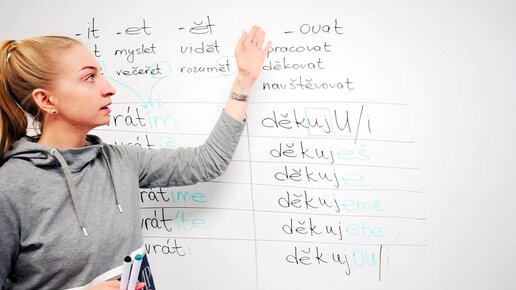 -it -et -ět -ovat
myslet vidět pracovat
večeřet rozumět děkovat
navštěvovat
vrátím děkujU/i
děkuješ
děkuje
vrátíme děkujeme
vrátíte děkujete
vrátí děkujou/í